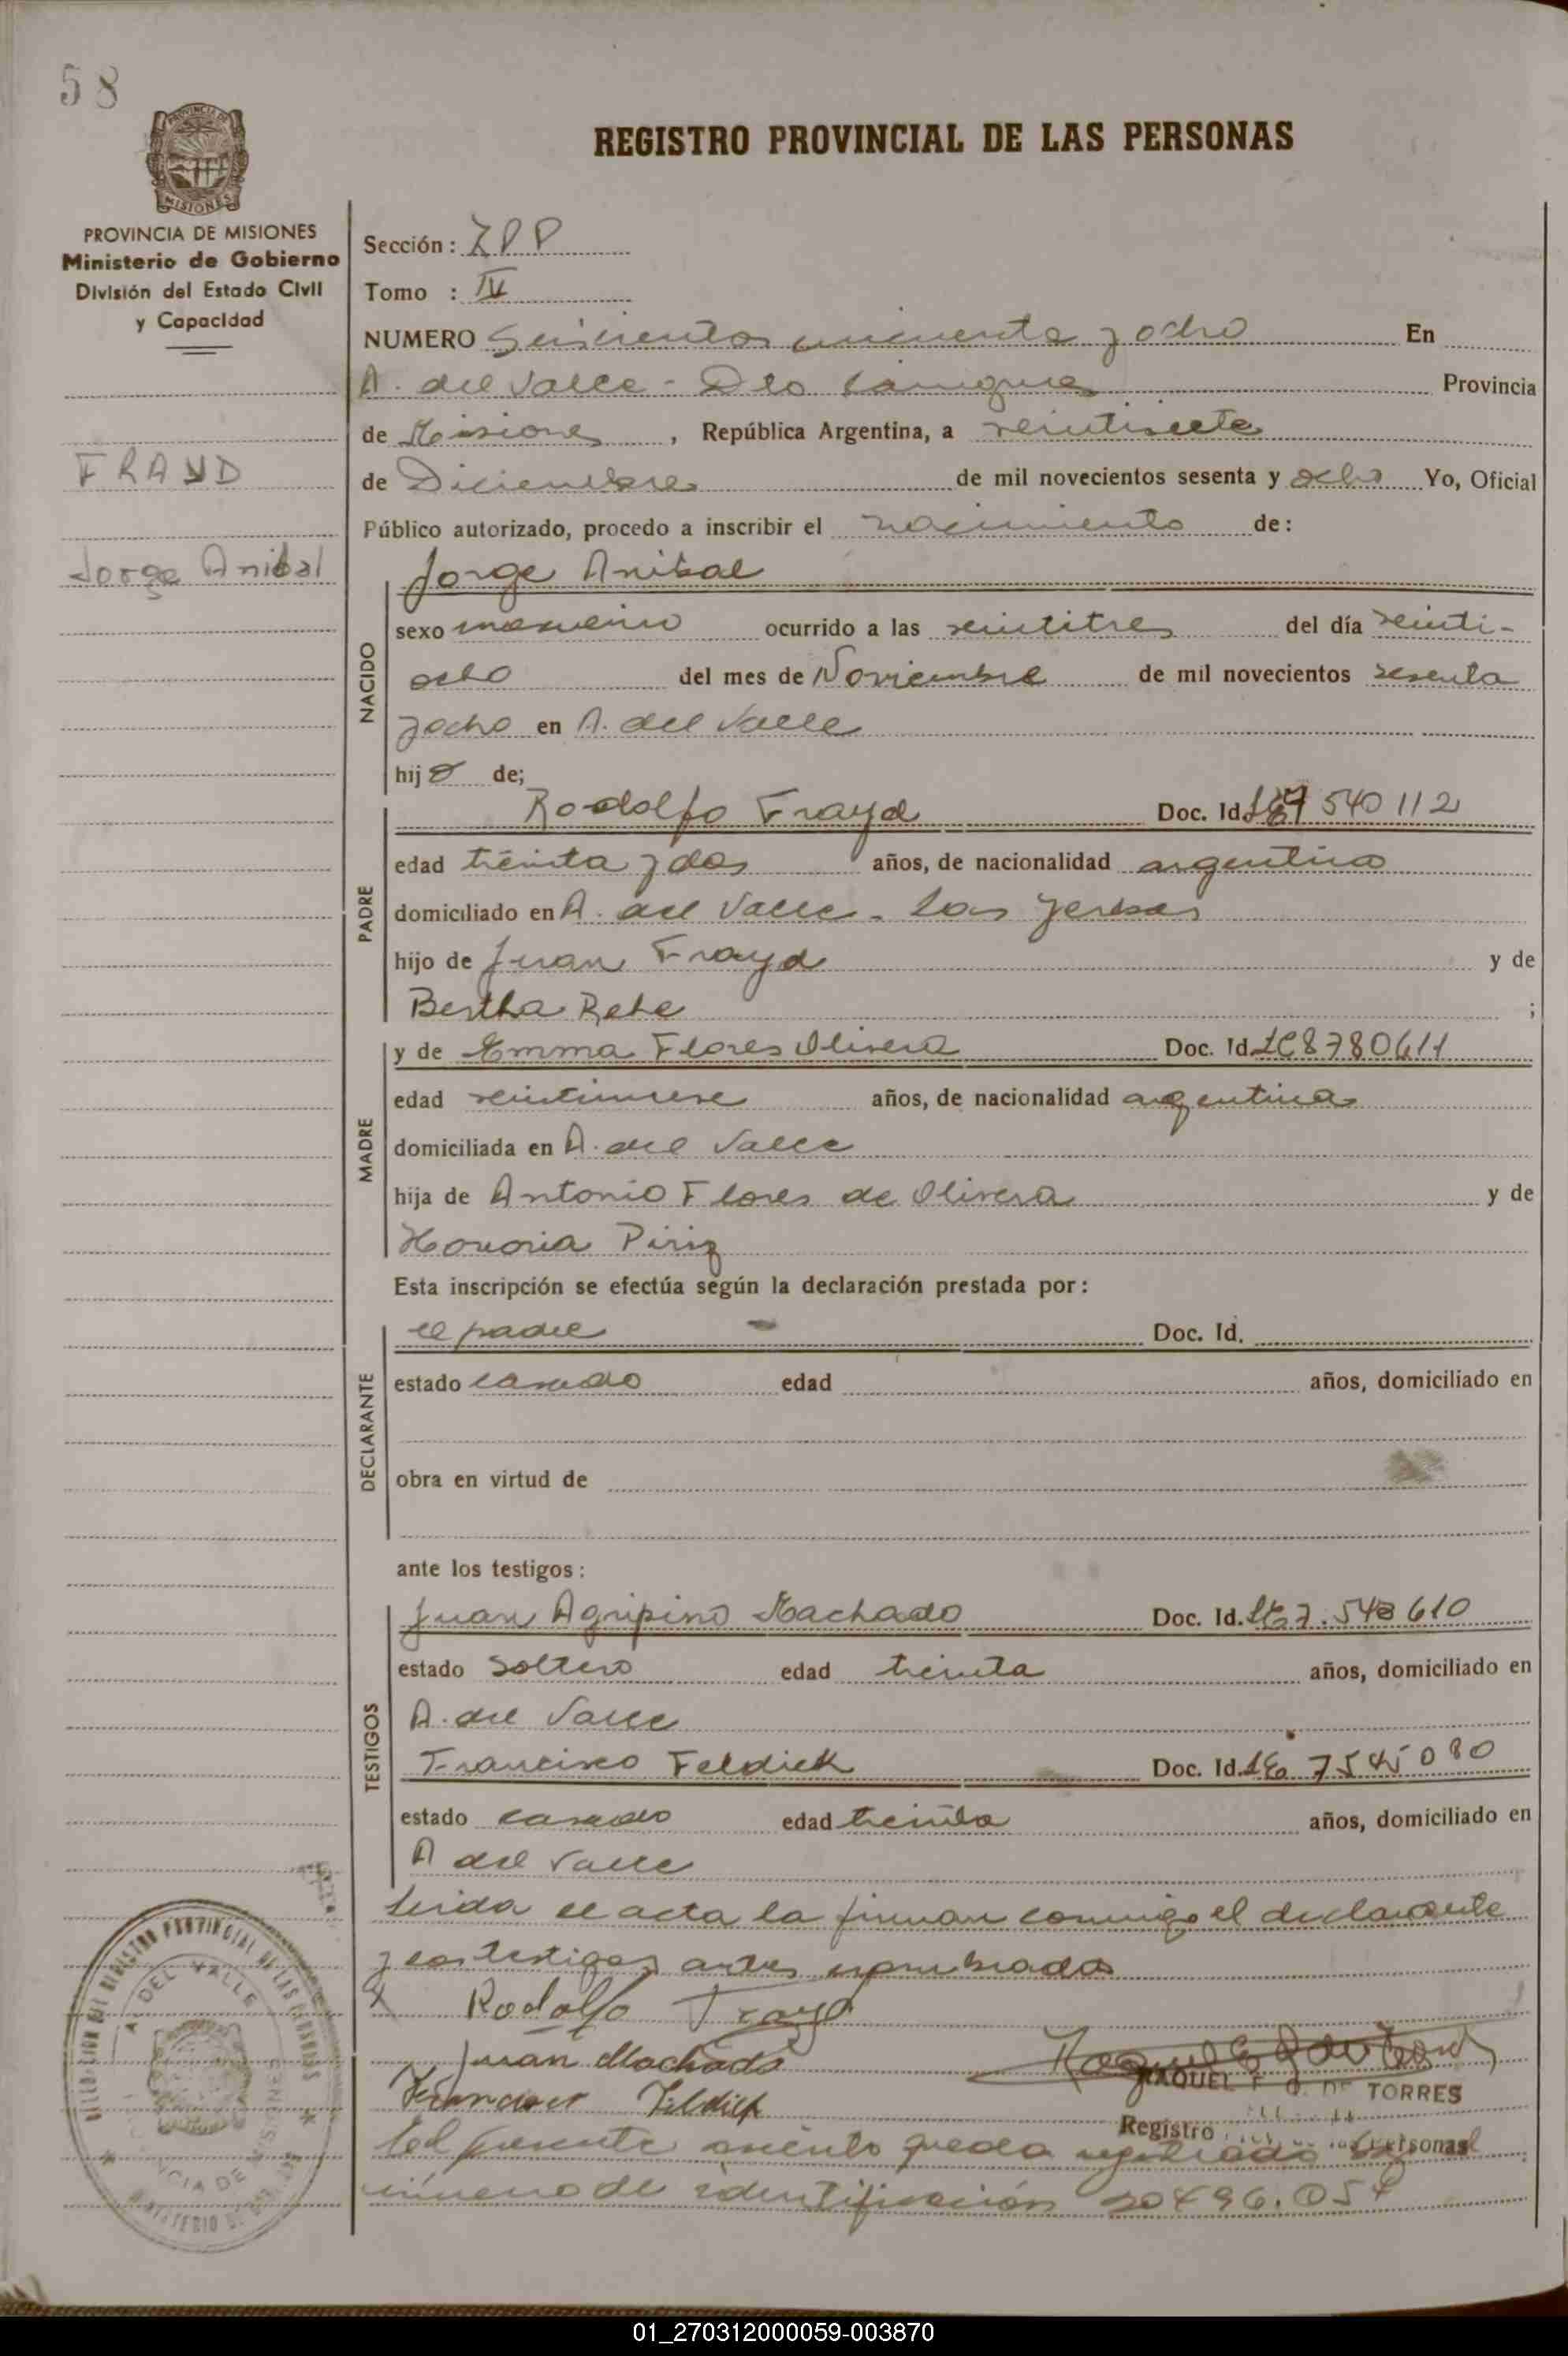 58
PROVINCIA DE MISIONES
Ministerio de Gobierno
División del Estado Civil
y Capacidad
FRAYD
Jorge Anibal
REGISTRO PROVINCIAL DE LAS PERSONAS
Sección :
Tomo : IV
NUMERO Seiscientos cincuenta y ocho En
A. del Valle - Dto Cainguas Provincia
de Misiones, República Argentina, a veintisiete
de Diciembre de mil novecientos sesenta y ocho Yo, Oficial
Público autorizado, procedo a inscribir el nacimiento de:
NACIDO
Jorge Anibal
sexo masculino ocurrido a las veintitres del día veinti-
ocho del mes de Noviembre de mil novecientos sesenta
y ocho en A. del Valle
hijo de;
PADRE
Rodolfo Frayd Doc. Id. LE7 540 112
edad treinta y dos años, de nacionalidad argentina
domiciliado en A. del Valle - Las Yerbas
hijo de Juan Frayd y de
Bertha Rehe ;
MADRE
y de Emma Flores Olivera Doc. Id. LC8780611
edad veintinueve años, de nacionalidad argentina
domiciliada en A. del Valle
hija de Antonio Flores de Olivera y de
Honoria Piriz
Esta inscripción se efectúa según la declaración prestada por:
DECLARANTE
el padre Doc. Id.
estado casado edad años, domiciliado en
obra en virtud de
ante los testigos:
TESTIGOS
Juan Agripino Machado Doc. Id. LE7.548610
estado soltero edad treinta años, domiciliado en
A. del Valle
Francisco Feldick Doc. Id. LE 7545080
estado casado edad treinta años, domiciliado en
A del Valle
Leida el acta la firman conmigo el declarante
y los testigos antes nombrados
X Rodolfo Frayd
Juan Machado
Francisco Feldick
RAQUEL F. DE TORRES
Registro Personas
El presente asiento queda registrado
número de identificación 20496.054
A. DEL VALLE
01_270312000059-003870